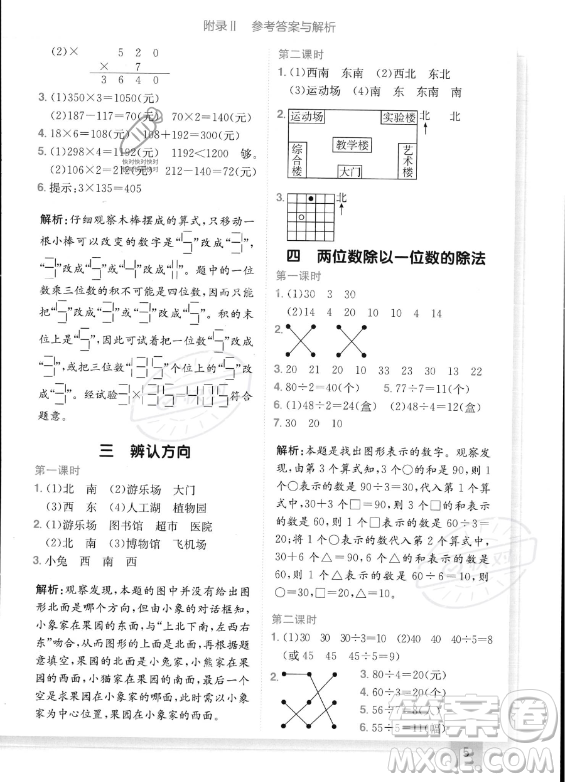 附录Ⅱ 参考答案与解析
(2)× 5 2 0
× 7
3 6 4 0
3. (1)350×3=1050(元)
(2)187-117=70(元) 70×2=140(元)
4. 18×6=108(元) 108+192=300(元)
5. (1)298×4=1192(元) 1192<1200 够。
(2)106×2=212(元) 172×2=
6. 提示:3×135=405
解析:仔细观察木棒摆成的算式,只移动一
根小棒可以改变的数字是“ ”改成“ ”,
“ ”改成“ ”或“ ”改成“ ”。题中的一位
数乘三位数的积不可能是四位数,因此只
能把“ ”改成“ ”或“ ”改成“ ”。积的末
位上是“ ”,因此可以考虑把一位数“ ”改
成“ ”,或把三位数“ ”个位上的“ ”改
成“ ”。经试验 符合
题意。
三 辨认方向
第一课时
1. (1)北 南 (2)游乐场 大门
(3)西 东 (4)人工湖 植物园
2. (1)游乐场 图书馆 超市 医院
(2)北 南 (3)博物馆 飞机场
3. 小兔 西 南 西
解析:观察发现,本题的图中并没有给出图
形北面是哪个方向,但因为小象的家在小
象家果园的东面,根据“上北下南,左西右
东”吻合,可以得出北面朝上。再根据题意
得出,小象家果园的北面是小兔家,小熊家
在小象家果园的西面,小象家果园的南面
是小猫家,小猫家在小鹿家的西面。小象
家在图的正中心位置,所以小象家果园在
小象家的西面。
第二课时
1. (1)西南 东南 (2)西北 东北
(3)运动场 (4)南 东 南 南
2.
运动场 实验楼 北
教学楼
综合楼 大门 艺术楼
3.
北
四 两位数除以一位数的除法
第一课时
1. (1)30 3 30
(2)14 20 10 10 4 14
2.
3. 20 21 20 10 13 33 22
4. 80÷2=40(个) 5. 77÷7=11(个)
6. (1)48÷2=24(盒) (2)48÷4=12(盒)
7. 30 20 15
解析:本题是找出图形表示的数字。观察发
现,由第3个算式3个□的和是90,所以1
个□表示的数是90÷3=30;代入第1个算
式中,30+3个○=90,3个○=60,所以1
个○表示的数是60÷3=
20;将两个□表示的数代入第2个算式中,
30+6个△=90,6个△=60,所以2个△
=30,1个△表示的数是30÷2=15。
第二课时
1. (1)30 30 30÷3=10(或 45
(或45 45 45÷5=9)
2.
3. 80÷4=20(元)
4. 60÷6=10(元)
5.
6. 55÷5=11(元)
答案圈
MXQE.COM
5